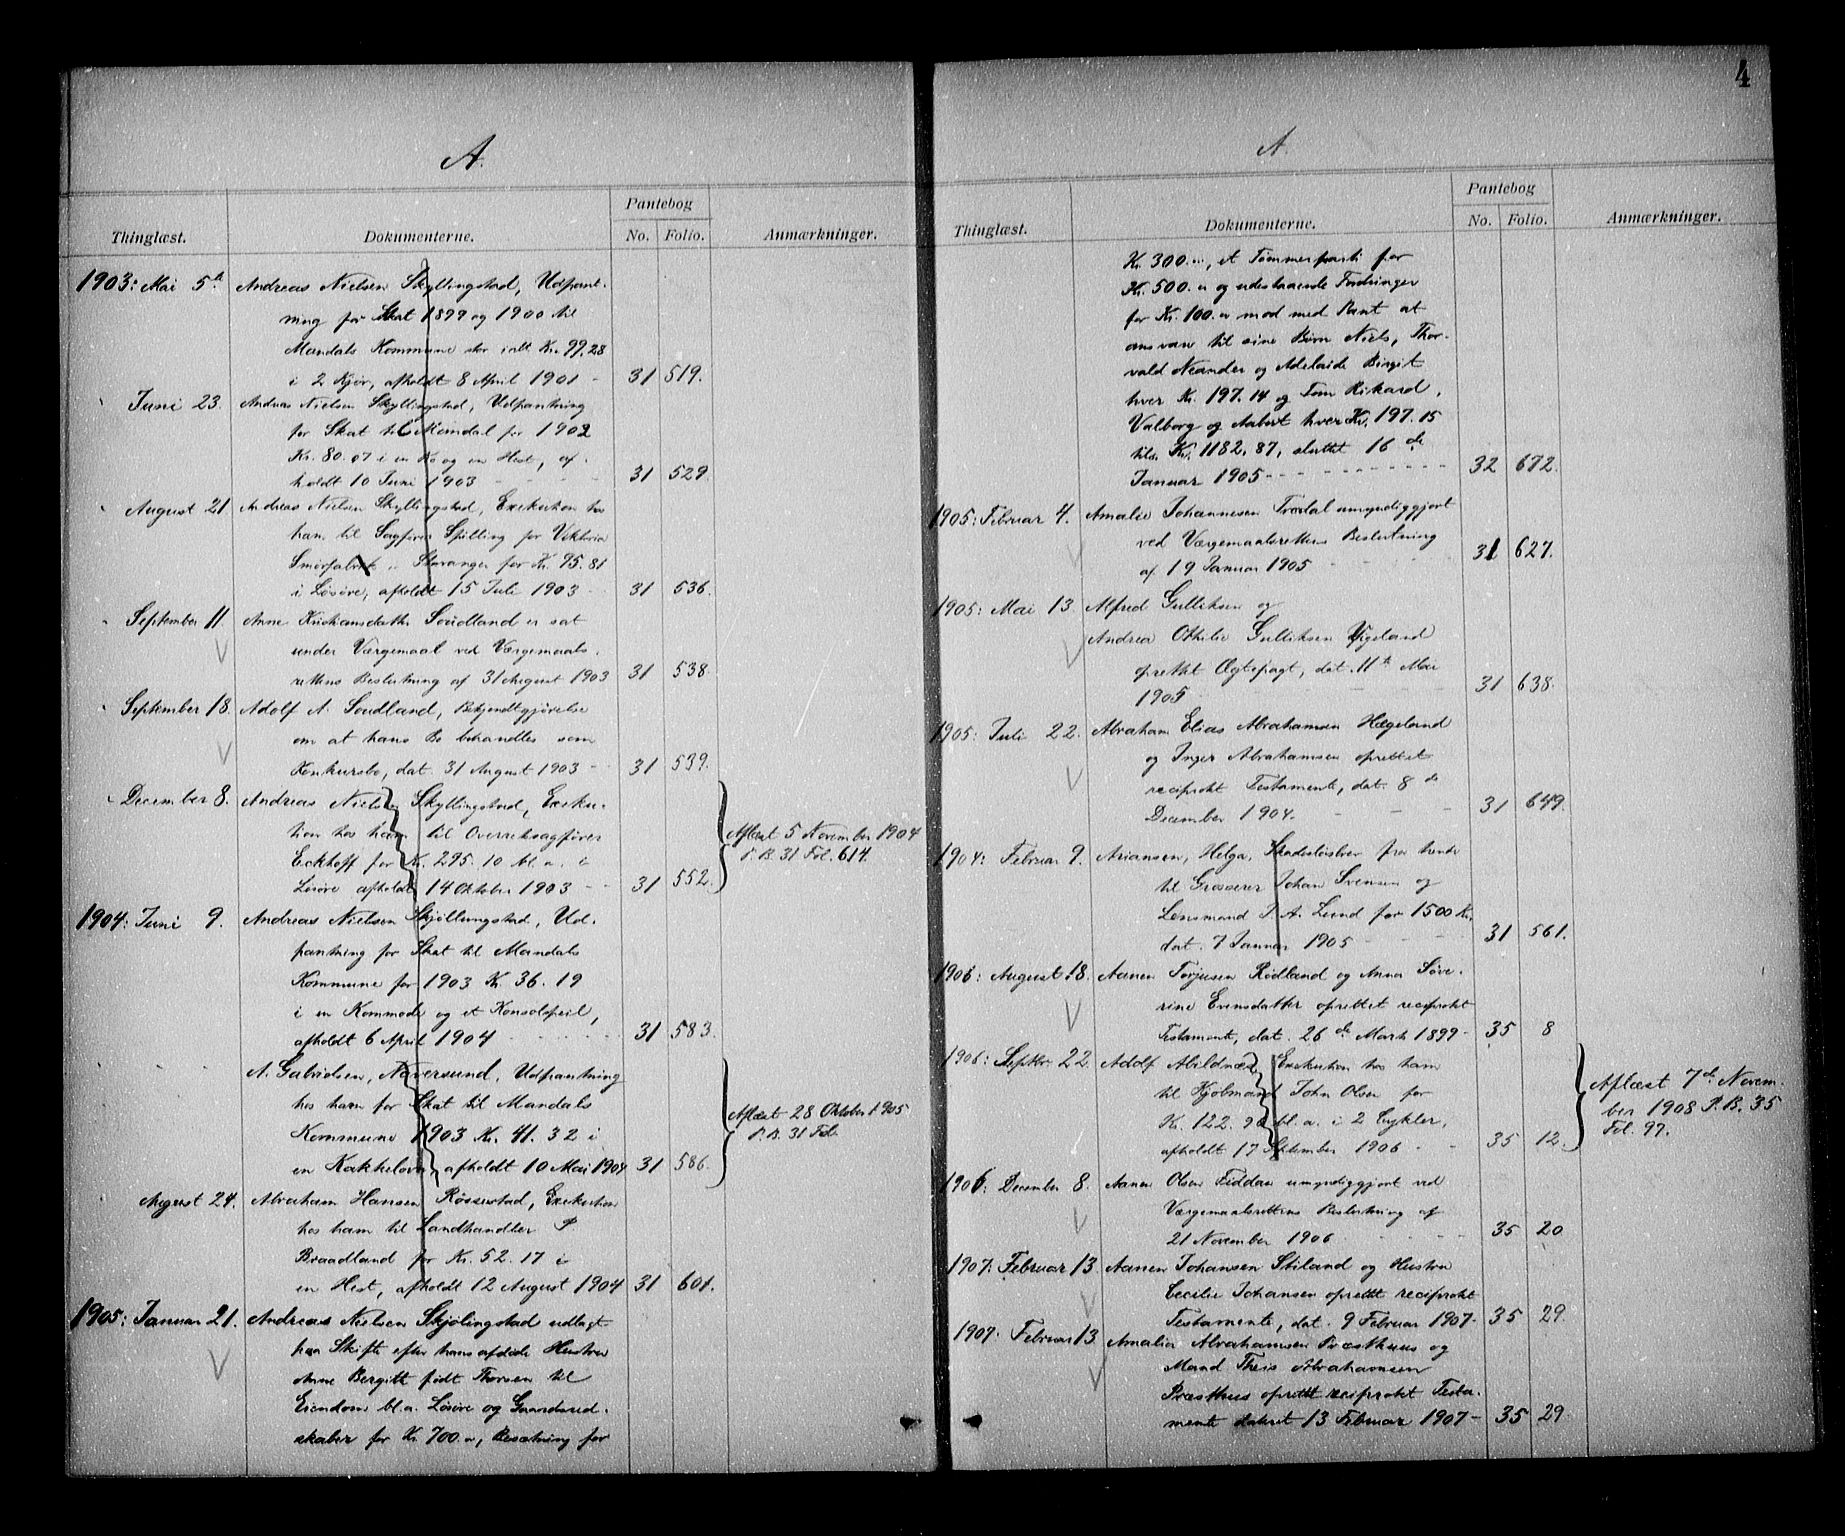 4
A.
Pantebog
Thinglæst. Dokumenterne. No. Folio. Anmærkninger.
1903: Mai 5te Andreas Nielsen Skyllingstad, Udpant-
ning for Skat 1899 og 1900 til
Mandals Kommune stor ialt Kr. 99.28
i 2 Kjør, afholdt 8 April 1901 - 31 519.
Juni 23. Andreas Nielsen Skyllingstad, Udpantning
for Skat til Mandal for 1902
Kr. 80.07 i en Ko og en Hest, af-
holdt 10 Juni 1903 - 31 529.
August 21 Andreas Nielsen Skyllingstad, Exekution hos
ham til Sagfører Spilling for Viktoria
Smørfabrik, Stavanger for Kr. 95.81
i Løsøre, afholdt 15 Juli 1903 - 31 536.
September 11. Anne Kristiansdatter Soudland er sat
under Værgemaal ved Værgemaals-
rettens Beslutning af 31 August 1903 31 538
September 18. Adolf A. Soudland, Bekjendtgjørelse
om at hans Bo behandles som
Konkursbo, dat. 31 August 1903 - 31 539.
December 8. Andreas Nielsen Skyllingstad, Exeku-
tion hos ham til Overretssagfører
Eckhoff for Kr. 295.10 bl.a. i
Løsøre afholdt 14 Oktober 1903 - 31 552.
Aflæst 5 November 1904
P.B. 31 Fol. 614.
1904: Juni 9. Andreas Nielsen Skjøllingstad, Ud-
pantning for Skat til Mandals
Kommune for 1903 Kr. 36.19
i en Kommode og et Konsolspeil,
afholdt 6 April 1904 31 583.
A. Gabrielsen, Naversund, Udpantning
hos ham for Skat til Mandals
Kommune 1903 Kr. 41.32 i
en Kakkelovn, afholdt 10 Mai 1904 31 586.
Aflæst 28 Oktober 1905
P.B. 31 Fol.
August 24. Abraham Hansen Røssestad, Exekution
hos ham til Landhandler P
Braadland for Kr. 52.17 i
en Hest, afholdt 12 August 1904 31 601.
1905: Januar 21. Andreas Nielsen Skjølingstad udlagt
paa Skifte efter hans afdøde Hustru
Anne Bergitt født Thorsen til
Eiendom bl.a. Løsøre og Gaardsred-
skaber for Kr. 700.", Besætning for
A
Pantebog
Thinglæst. Dokumenterne. No. Folio. Anmærkninger.
Kr. 300.", et Tømmerparti for
Kr. 500." og udestaaende Fordringer
for Kr. 100." mod med Pant at
ansvare til sine Børn Niels, Thor-
vald Neander og Adelaide Birgit
hver Kr. 197.14 og Tom Rikard,
Valborg og Aabert hver Kr. 197.15
tils. Kr. 1182.87, sluttet 16de
Januar 1905 - 32 672.
1905: Februar 4. Amalie Johannesen Trædal umyndiggjort
ved Værgemaalsrettens Beslutning
af 19 Januar 1905 31 627.
1905: Mai 13 Alfred Gulliksen og
Andrea Othilie Gulliksen Vigeland
oprettet Ægtepagt, dat. 11te Mai
1905 31 638.
1905: Juli 22. Abraham Elias Abrahamsen Hægeland
og Inger Abrahamsen oprettet
reciprokt Testamente, dat. 8de
December 1904. - 31 649.
1904: Februar 9. Ariansen, Helga, Skadesløsbrev fra hende
til Grosserer Johan Svensen og
Lensmand P.A. Lund for 1500 Kr.
dat. 7 Januar 1905 - 31 561.
1906: August 18. Aanen Torjusen Rødland og Anna Søve-
rine Evensdatter oprettet reciprokt
Testamente, dat. 26de Marts 1899 - 35 8
1906: Septbr. 22. Adolf Abildnæs, Exekution hos ham
til Kjøbmand John Olsen for
Kr. 122.90 bl.a. i 2 Cykler,
afholdt 17 September 1906 - 35 12.
Aflæst 7de Novem-
ber 1908 P.B. 35
Fol. 97.
1906: December 8. Aanen Olsen Fiddan umyndiggjort ved
Værgemaalsrettens Beslutning af
21 November 1906 35 20
1907: Februar 13. Aanen Johansen Stiland og Hustru
Cecilie Johansen oprettet reciprokt
Testamente, dat. 9 Februar 1907 - 35 29.
1907: Februar 13 Amalia Abrahamsen Præsthuus og
Mand Theis Abrahamsen
Præsthus oprettet reciprokt Testa-
mente dateret 13 Februar 1907 - 35 29.